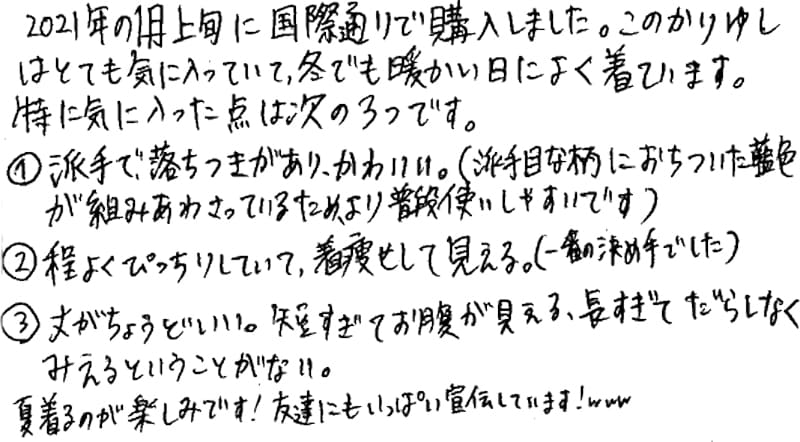 2021年の1月上旬に国際通りで購入しました。このかりゆし
はとても気に入っていて、冬でも暖かい日によく着ています。
特に気に入った点は次の3つです。
①派手で落ちつきがあり、かわいい。(派手目な柄におちついた藍色
が組みあわさっているため、より普段使いしやすいです)
②程よくぴっちりしていて、着痩せして見える。(一番の決め手でした)
③丈がちょうどいい。短すぎてお腹が見える、長すぎてだらしなく
みえるということがない。
夏着るのが楽しみです!友達にもいっぱい宣伝しています!www